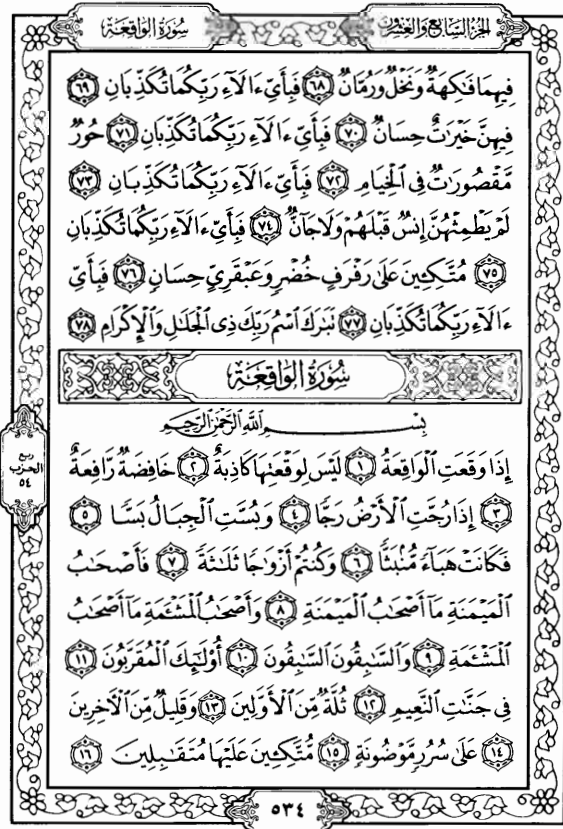 سُورَةُ الوَاقِعَةِ
الجُزْءُ السَّابِعُ وَالعِشْرُونَ
فِيهِمَا فَٰكِهَةٌ وَنَخْلٌ وَرُمَّانٌ ٦٨ فَبِأَيِّ ءَالَآءِ رَبِّكُمَا تُكَذِّبَانِ ٦٩
فِيهِنَّ خَيْرَٰتٌ حِسَانٌ ٧٠ فَبِأَيِّ ءَالَآءِ رَبِّكُمَا تُكَذِّبَانِ ٧١ حُورٌ
مَّقْصُورَٰتٌ فِى ٱلْخِيَامِ ٧٢ فَبِأَيِّ ءَالَآءِ رَبِّكُمَا تُكَذِّبَانِ ٧٣
لَمْ يَطْمِثْهُنَّ إِنسٌ قَبْلَهُمْ وَلَا جَآنٌّ ٧٤ فَبِأَيِّ ءَالَآءِ رَبِّكُمَا تُكَذِّبَانِ
٧٥ مُتَّكِـِٔينَ عَلَىٰ رَفْرَفٍ خُضْرٍ وَعَبْقَرِىٍّ حِسَانٍ ٧٦ فَبِأَيِّ
ءَالَآءِ رَبِّكُمَا تُكَذِّبَانِ ٧٧ تَبَٰرَكَ ٱسْمُ رَبِّكَ ذِى ٱلْجَلَٰلِ وَٱلْإِكْرَامِ ٧٨
سُورَةُ الوَاقِعَةِ
بِسْمِ ٱللَّهِ ٱلرَّحْمَٰنِ ٱلرَّحِيمِ
إِذَا وَقَعَتِ ٱلْوَاقِعَةُ ١ لَيْسَ لِوَقْعَتِهَا كَاذِبَةٌ ٢ خَافِضَةٌ رَّافِعَةٌ
٣ إِذَا رُجَّتِ ٱلْأَرْضُ رَجًّا ٤ وَبُسَّتِ ٱلْجِبَالُ بَسًّا ٥
فَكَانَتْ هَبَآءً مُّنۢبَثًّا ٦ وَكُنتُمْ أَزْوَٰجًا ثَلَٰثَةً ٧ فَأَصْحَٰبُ
ٱلْمَيْمَنَةِ مَآ أَصْحَٰبُ ٱلْمَيْمَنَةِ ٨ وَأَصْحَٰبُ ٱلْمَشْـَٔمَةِ مَآ أَصْحَٰبُ
ٱلْمَشْـَٔمَةِ ٩ وَٱلسَّٰبِقُونَ ٱلسَّٰبِقُونَ ١٠ أُو۟لَٰٓئِكَ ٱلْمُقَرَّبُونَ ١١
فِى جَنَّٰتِ ٱلنَّعِيمِ ١٢ ثُلَّةٌ مِّنَ ٱلْأَوَّلِينَ ١٣ وَقَلِيلٌ مِّنَ ٱلْـَٔاخِرِينَ
١٤ عَلَىٰ سُرُرٍ مَّوْضُونَةٍ ١٥ مُّتَّكِـِٔينَ عَلَيْهَا مُتَقَٰبِلِينَ ١٦
ربع
الحزب
٥٤
٥٣٤